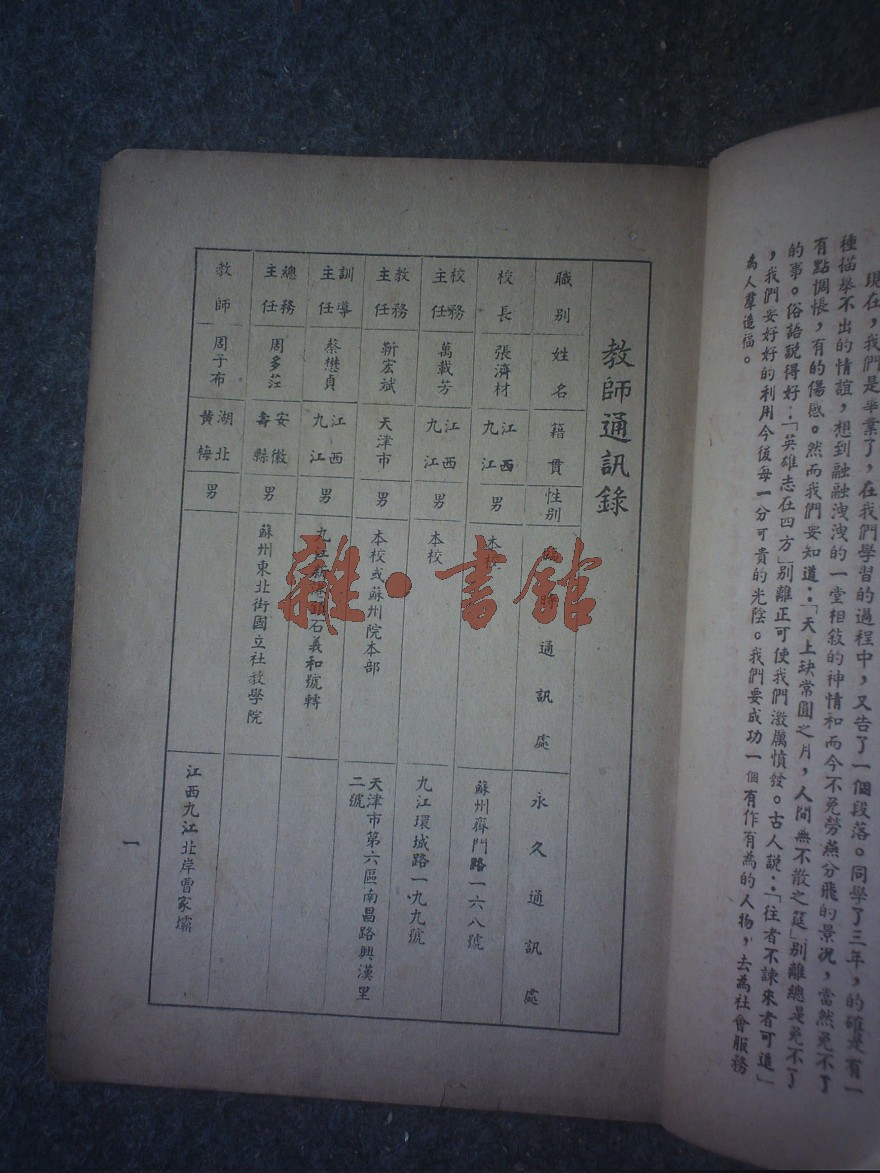 現在，我們是畢業了，在我們學習的過程中，又告了一個段落。同學了三年，的確是有一
種描舉不出的情誼，想到融融洩洩的一堂相敘的神情和而今不免勞燕分飛的景況，當然免不了
有點惆悵，有的傷感。然而我們要知道：「天上缺常圓之月，人間無不散之筵」別離總是免不了
的事。俗語說得好：「英雄志在四方」別離正可使我們激厲憤發。古人說：「往者不諫來者可追」
，我們要好好的利用今後每一分可貴的光陰。我們要成功一個有作有為的人物，去為社會服務
為人羣造福。
教師通訊錄
職別 姓名 籍貫 性別 臨時通訊處 永久通訊處
校長 張濟材 江西九江 男 本校 蘇州齊門路一六八號
校務主任 萬載芳 江西九江 男 本校 九江環城路一九九號
教務主任 靳宏斌 天津市 男 本校或蘇州院本部 天津市第六區南昌路興漢里二號
訓導主任 蔡懋貞 江西九江 男 九江 石義和號轉
總務主任 周多莊 安徽壽縣 男 蘇州東北街國立社教學院
教師 周子布 湖北黃梅 男 江西九江北岸曹家壩
一
雜·書館